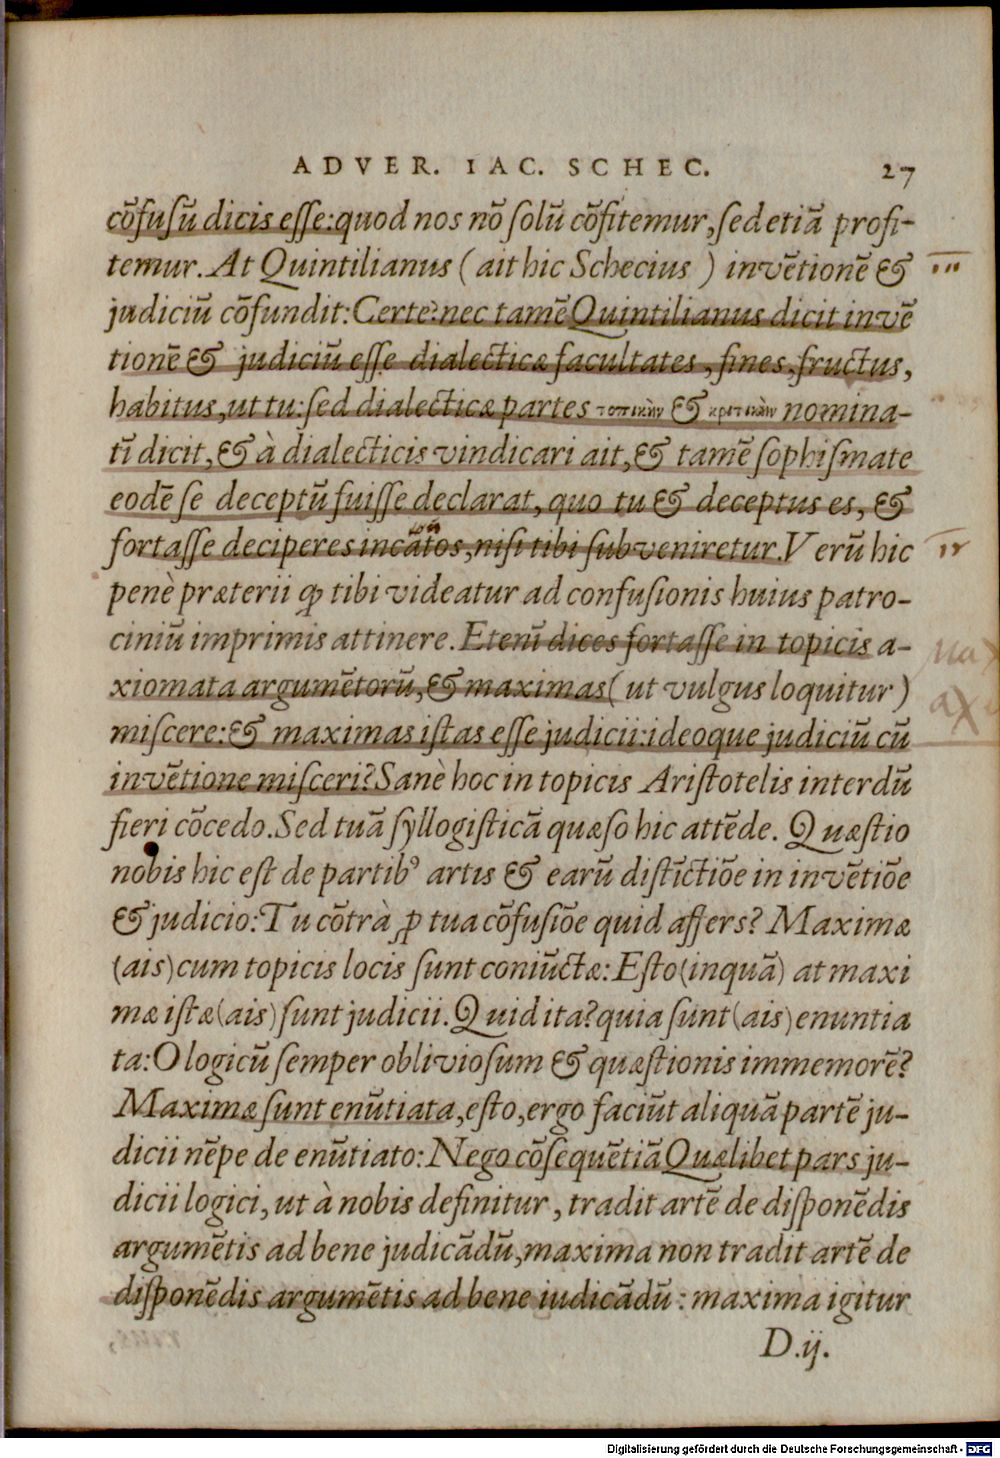 ADVER. IAC. SCHEC. 27
cōfusū dicis esse: quod nos nō solū cōfitemur, sed etiā profi-
temur. At Quintilianus ( ait hic Schecius ) invētionē &
judiciū cōfundit: Certe: nec tamē Quintilianus dicit invē
tionē & judiciū esse dialecticæ facultates, fines, fructus,
habitus, ut tu: sed dialecticæ partes τοπικὴν & κριτικὴν nomina-
tī dicit, & à dialecticis vindicari ait, & tamē sophismate
eodē se deceptū fuisse declarat, quo tu & deceptus es, &
fortasse deciperes incātos, nisi tibi subveniretur. Verū hic
penè præterii ꝙ tibi videatur ad confusionis huius patro-
ciniū imprimis attinere. Etenī dices fortasse in topicis a-
xiomata argumētorū, & maximas ( ut vulgus loquitur )
miscere: & maximas istas esse judicii: ideoque judiciū cū
invētione misceri? Sanè hoc in topicis Aristotelis interdū
fieri cōcedo. Sed tuā syllogisticā quæso hic attēde. Quæstio
nobis hic est de partibꝰ artis & earū distīctiōe in invētiōe
& judicio: Tu cōtrà ꝓ tua cōfusiōe quid affers? Maximæ
(ais) cum topicis locis sunt coniūctæ: Esto (inquā) at maxi
mæ istæ (ais) sunt judicii. Quid ita? quia sunt (ais) enuntia
ta: O logicū semper obliviosum & quæstionis immemorē?
Maximæ sunt enūtiata, esto, ergo faciūt aliquā partē ju-
dicii nēpe de enūtiato: Nego cōsequētiā Quælibet pars ju-
dicii logici, ut à nobis definitur, tradit artē de dispōnēdis
argumētis ad bene judicādū, maxima non tradit artē de
dispōnēdis argumētis ad bene iudicādū: maxima igitur
D.ij.
Digitalisierung gefördert durch die Deutsche Forschungsgemeinschaft - DFG